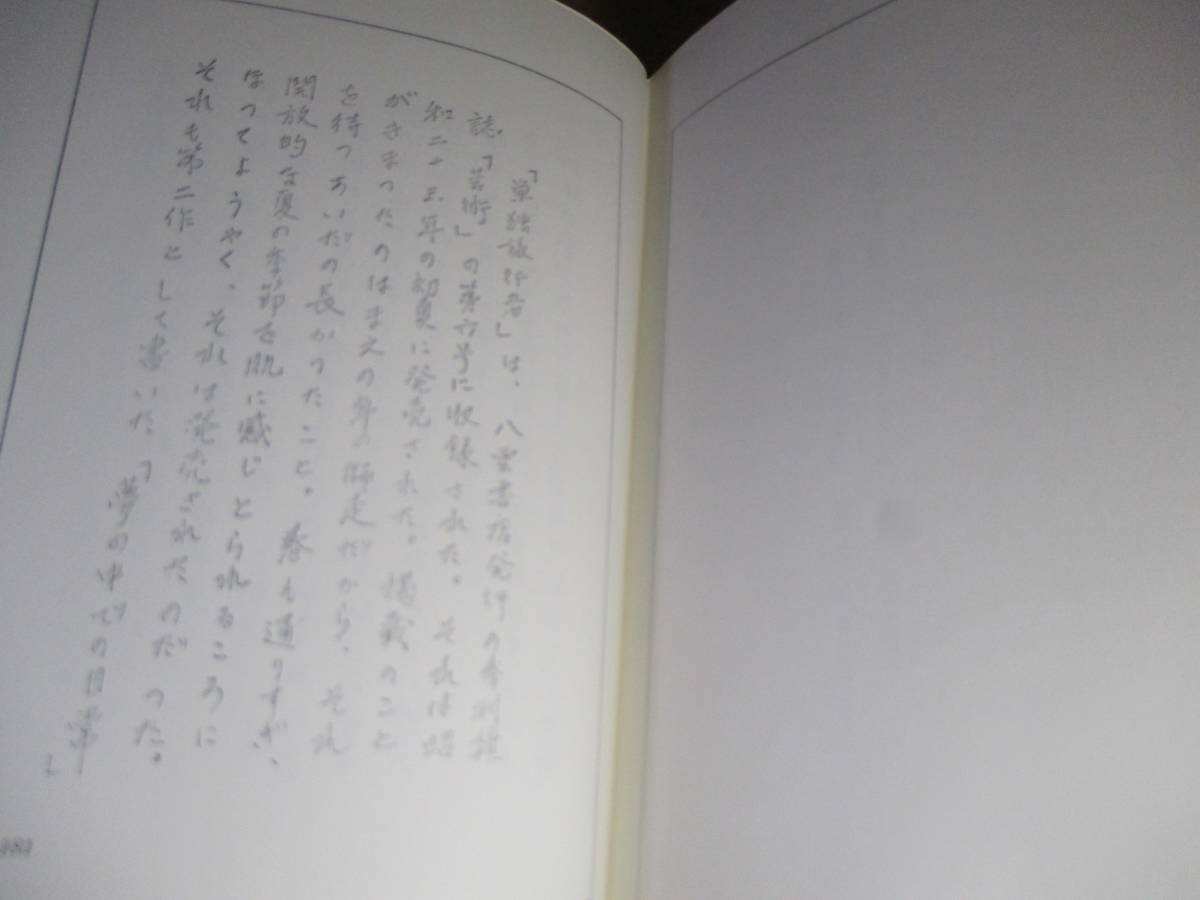 「単独旅行者」は、八雲書店発行の季刊雑
誌「芸術」の第六号に収録された。それは昭
和二十三年の初夏に発売された。掲載のこと
がきまったのはまえの年の師走だから、それ
を待つあいだの長かったこと。春も過りすぎ、
開放的な夏の季節を肌に感じとられるころに
なってようやく、それは発売されたのだった。
それも第二作として書いた「夢の中での日常」